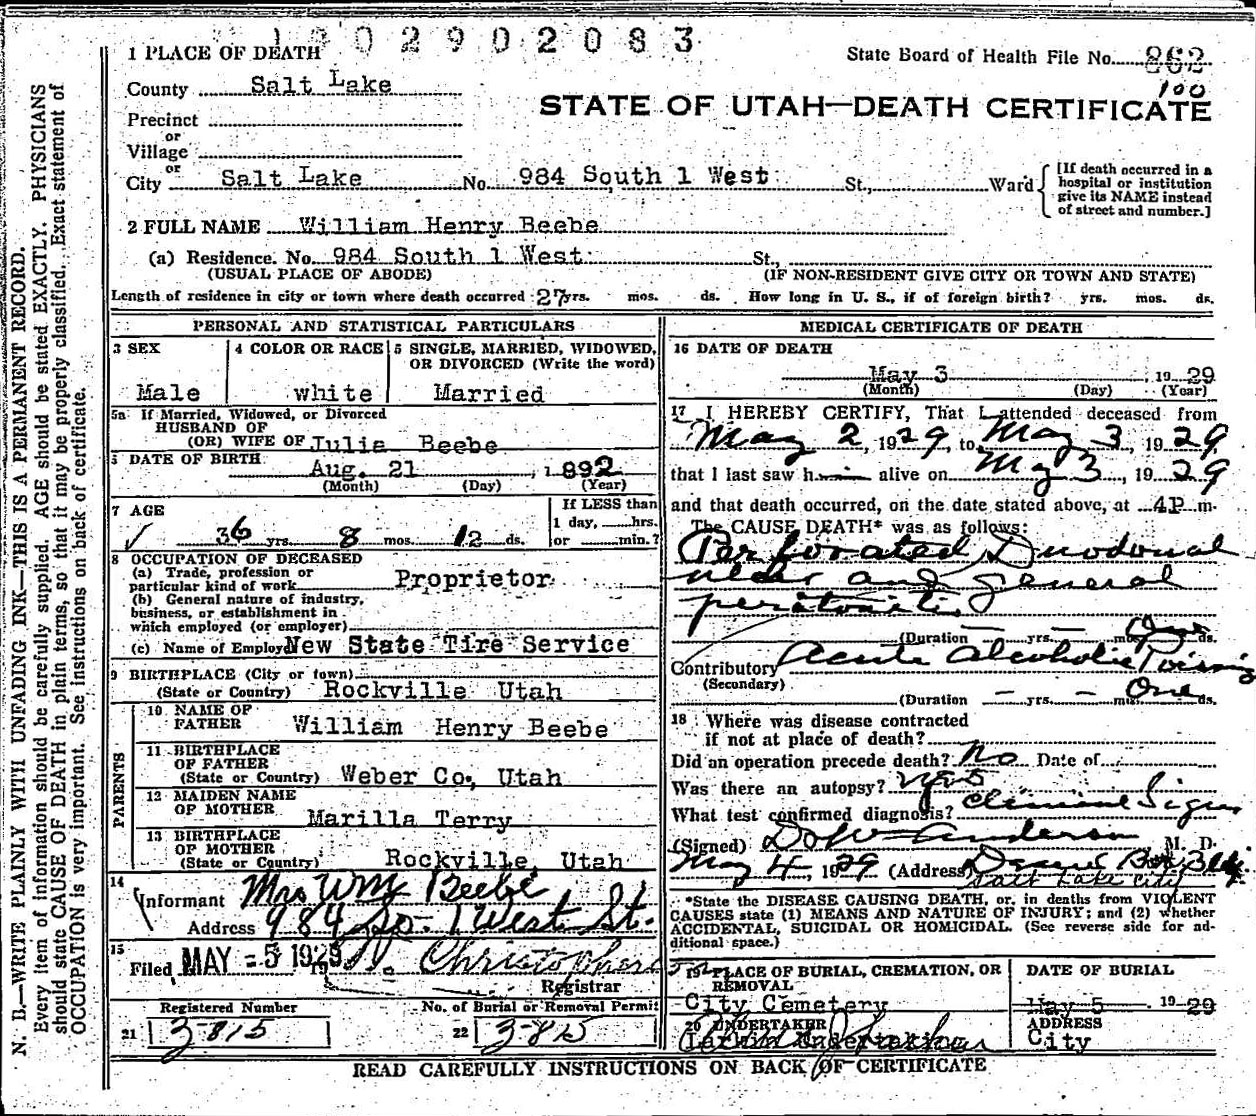 1902902083
1 PLACE OF DEATH
State Board of Health File No. 862
100
County Salt Lake
STATE OF UTAH—DEATH CERTIFICATE
Precinct
or
Village
or
City Salt Lake No. 984 South 1 West St., Ward
[If death occurred in a
hospital or institution
give its NAME instead
of street and number.]
2 FULL NAME William Henry Beebe
(a) Residence. No. 984 South 1 West St.,
(USUAL PLACE OF ABODE) (IF NON-RESIDENT GIVE CITY OR TOWN AND STATE)
Length of residence in city or town where death occurred 27 yrs. mos. ds. How long in U. S., if of foreign birth? yrs. mos. ds.
PERSONAL AND STATISTICAL PARTICULARS
3 SEX
Male
4 COLOR OR RACE
white
5 SINGLE, MARRIED, WIDOWED,
OR DIVORCED (Write the word)
Married
5a If Married, Widowed, or Divorced
HUSBAND OF
(OR) WIFE OF Julia Beebe
DATE OF BIRTH
Aug. 21, 1892
(Month) (Day) (Year)
7 AGE
36 yrs. 8 mos. 12 ds.
If LESS than
1 day, hrs.
or min.?
8 OCCUPATION OF DECEASED
(a) Trade, profession or
particular kind of work Proprietor
(b) General nature of industry,
business, or establishment in
which employed (or employer)
(c) Name of Employer New State Tire Service
9 BIRTHPLACE (City or town)
(State or Country) Rockville Utah
PARENTS
10 NAME OF
FATHER William Henry Beebe
11 BIRTHPLACE
OF FATHER
(State or Country) Weber Co, Utah
12 MAIDEN NAME
OF MOTHER Marilla Terry
13 BIRTHPLACE
OF MOTHER
(State or Country) Rockville, Utah
14
Informant Mrs Wm Beebe
Address 984 So. 1 West St.
15
Filed MAY -5 1929 Christophers
Registrar
Registered Number
21 3-815
No. of Burial or Removal Permit
22 3-815
MEDICAL CERTIFICATE OF DEATH
16 DATE OF DEATH
May 3, 1929
(Month) (Day) (Year)
17 I HEREBY CERTIFY, That I attended deceased from
May 2, 1929, to May 3, 1929
that I last saw him alive on May 3, 1929
and that death occurred, on the date stated above, at 4P m.
The CAUSE DEATH* was as follows:
Perforated Duodonal
ulcer and general
peritonitis
(Duration — yrs. — mos. One ds.
Contributory Acute Alcoholic Poisning
(Secondary)
(Duration — yrs. — mos. One ds.
18 Where was disease contracted
if not at place of death?
Did an operation precede death? No Date of
Was there an autopsy? yes
What test confirmed diagnosis? Clinical Signs
(Signed) Anderson M. D.
May 4, 1929 (Address) Deseret Bldg.
Salt Lake City
*State the DISEASE CAUSING DEATH, or, in deaths from VIOLENT
CAUSES state (1) MEANS AND NATURE OF INJURY; and (2) whether
ACCIDENTAL, SUICIDAL OR HOMICIDAL. (See reverse side for ad-
ditional space.)
19 PLACE OF BURIAL, CREMATION, OR
REMOVAL
City Cemetery
DATE OF BURIAL
May 5 1929
20 UNDERTAKER
Larkin Undertaking
ADDRESS
City
READ CAREFULLY INSTRUCTIONS ON BACK OF CERTIFICATE
N. B.—WRITE PLAINLY WITH UNFADING INK—THIS IS A PERMANENT RECORD.
Every item of information should be carefully supplied. AGE should be stated EXACTLY. PHYSICIANS
should state CAUSE OF DEATH in plain terms, so that it may be properly classified. Exact statement of
OCCUPATION is very important. See instructions on back of certificate.